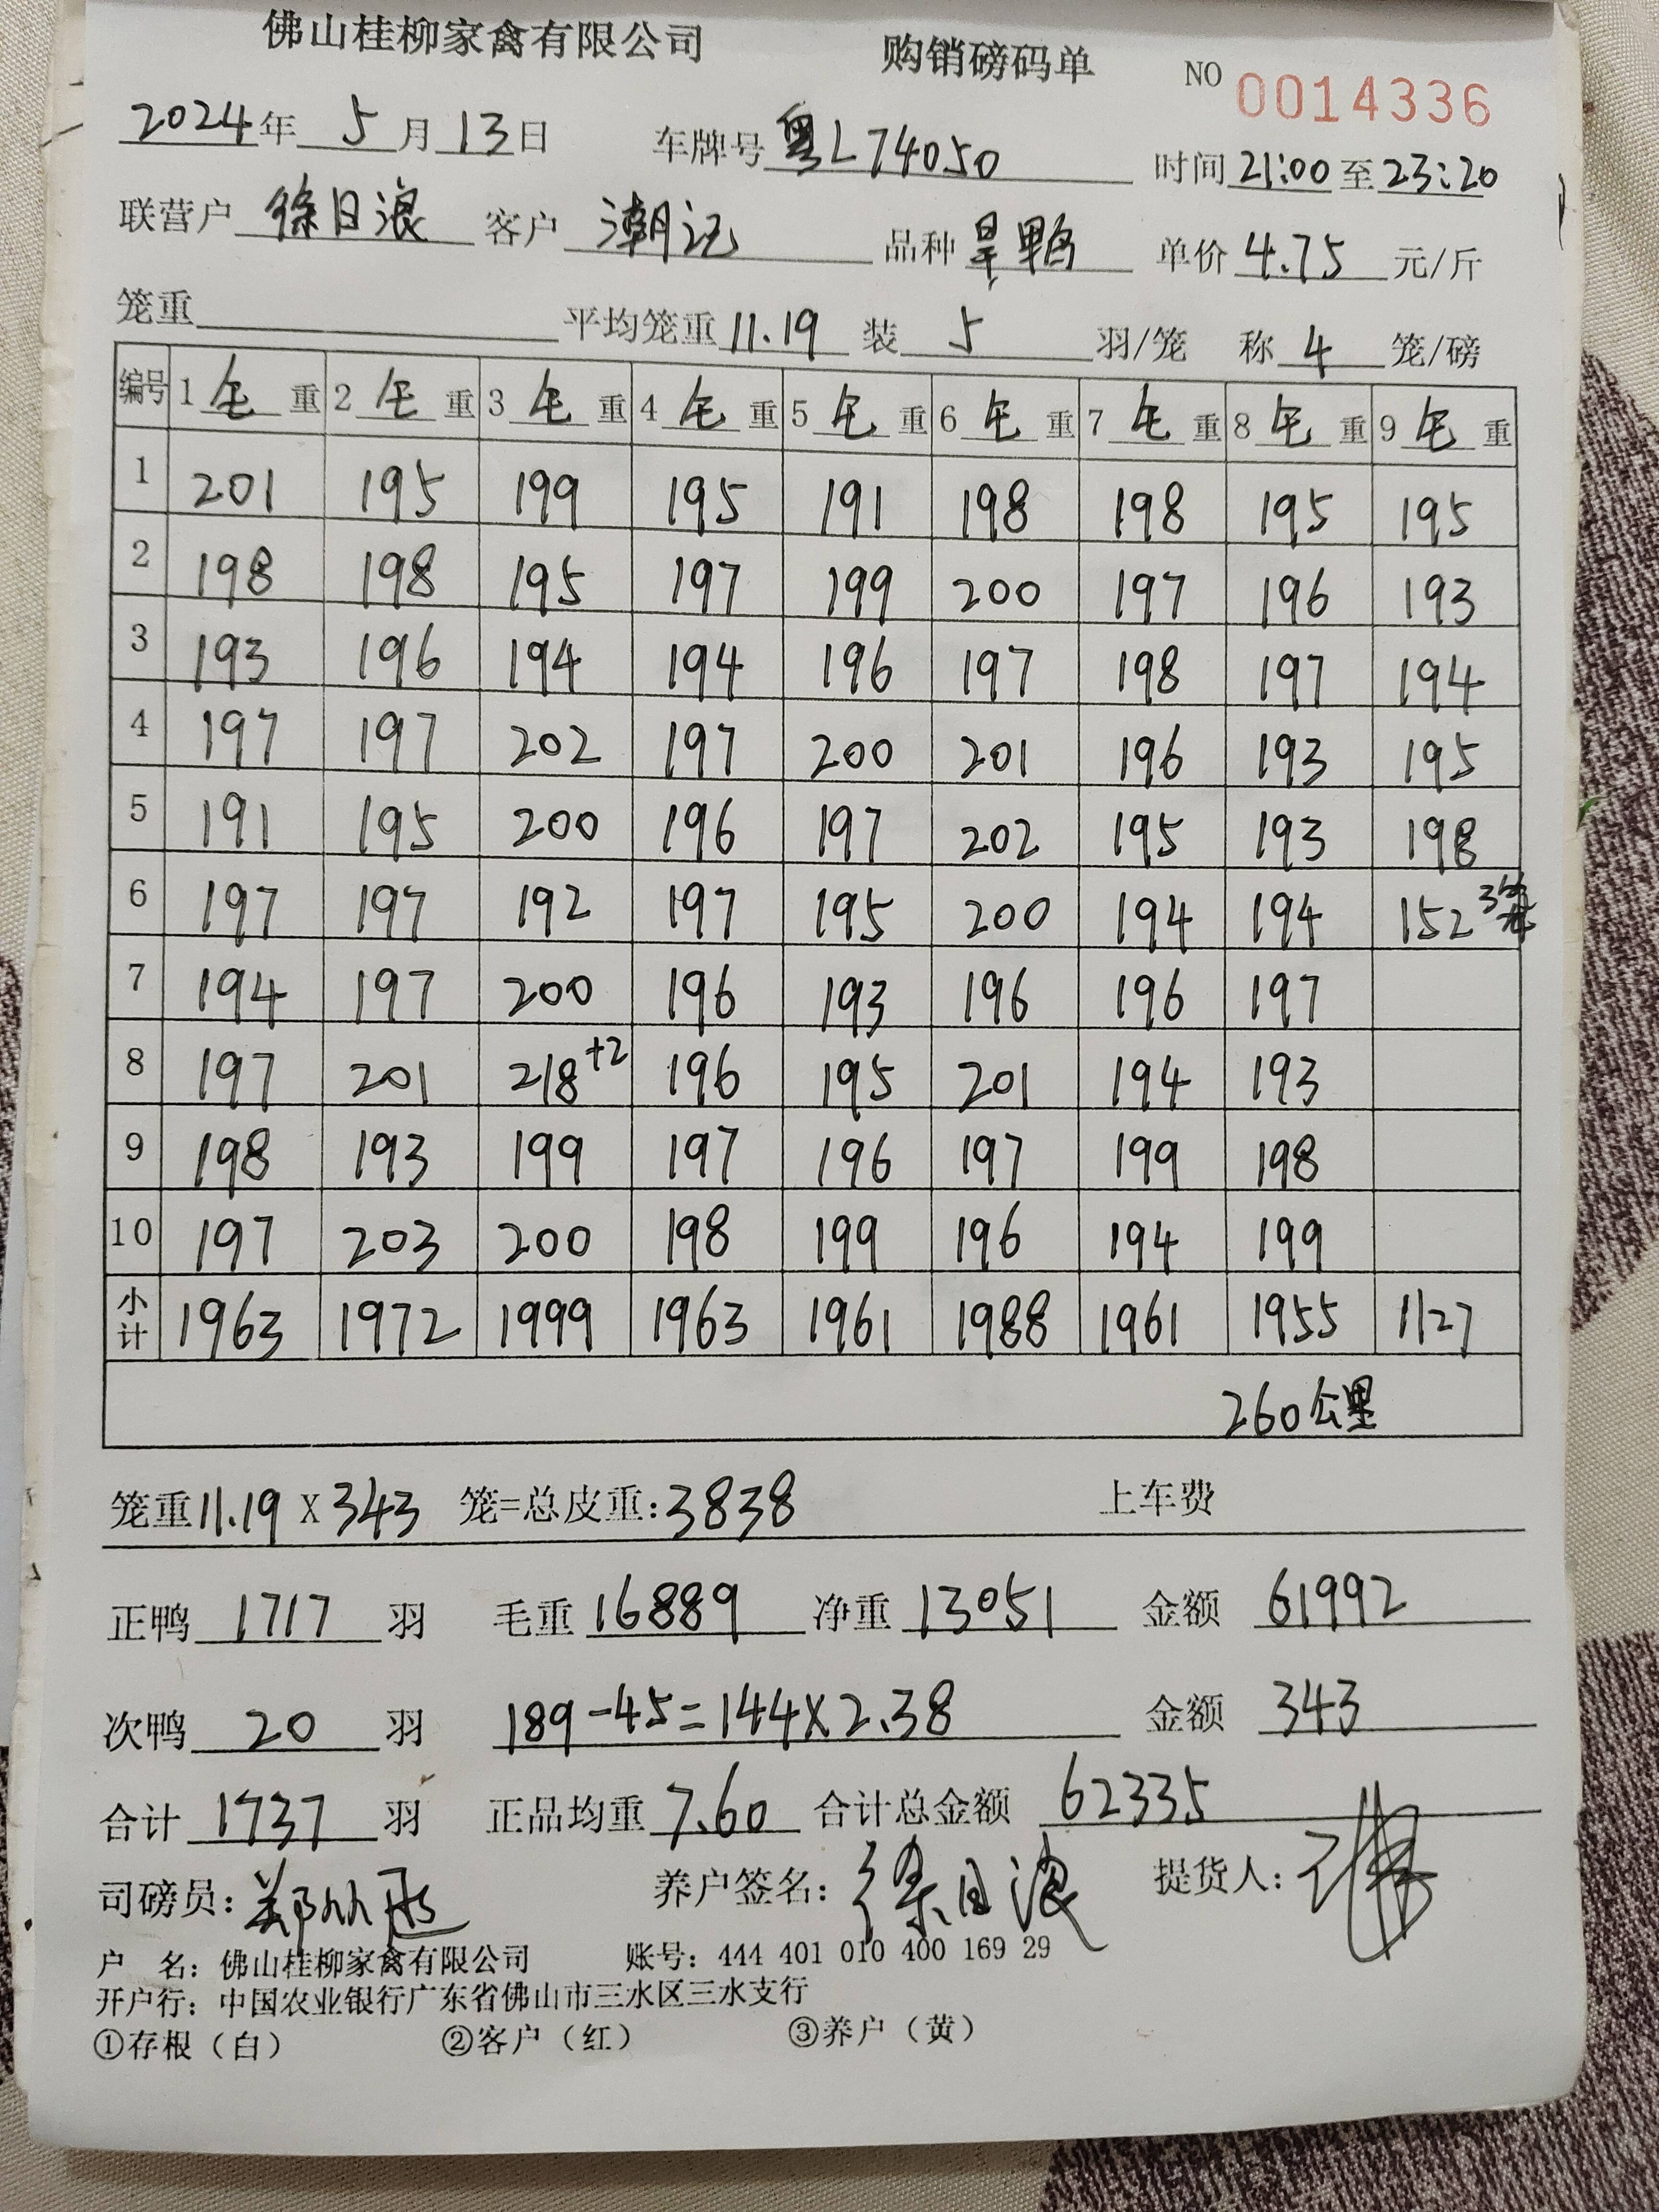 佛山桂柳家禽有限公司 购销磅码单 NO 0014336
2024年 5月13日 车牌号粤L74050 时间21:00至23:20
联营户 徐日浪 客户 潮记 品种 旱鸭 单价4.75 元/斤
笼重 平均笼重11.19 装 5 羽/笼 称 4 笼/磅
编号 1毛重 2毛重 3毛重 4毛重 5毛重 6毛重 7毛重 8毛重 9毛重
1 201 195 199 195 191 198 198 195 195
2 198 198 195 197 199 200 197 196 193
3 193 196 194 194 196 197 198 197 194
4 197 197 202 197 200 201 196 193 195
5 191 195 200 196 197 202 195 193 198
6 197 197 192 197 195 200 194 194 152 3笼
7 194 197 200 196 193 196 196 197
8 197 201 218+2 196 195 201 194 193
9 198 193 199 197 196 197 199 198
10 197 203 200 198 199 196 194 199
小计 1963 1972 1999 1963 1961 1988 1961 1955 1127
260公里
笼重11.19 X 343 笼=总皮重:3838 上车费
正鸭 1717 羽 毛重 16889 净重 13051 金额 61992
次鸭 20 羽 189-45=144X2.38 金额 343
合计 1737 羽 正品均重 7.60 合计总金额 62335
司磅员: 郑 养户签名: 徐日浪 提货人:
户 名: 佛山桂柳家禽有限公司 账号: 444 401 010 400 169 29
开户行: 中国农业银行广东省佛山市三水区三水支行
①存根（白） ②客户（红） ③养户（黄）